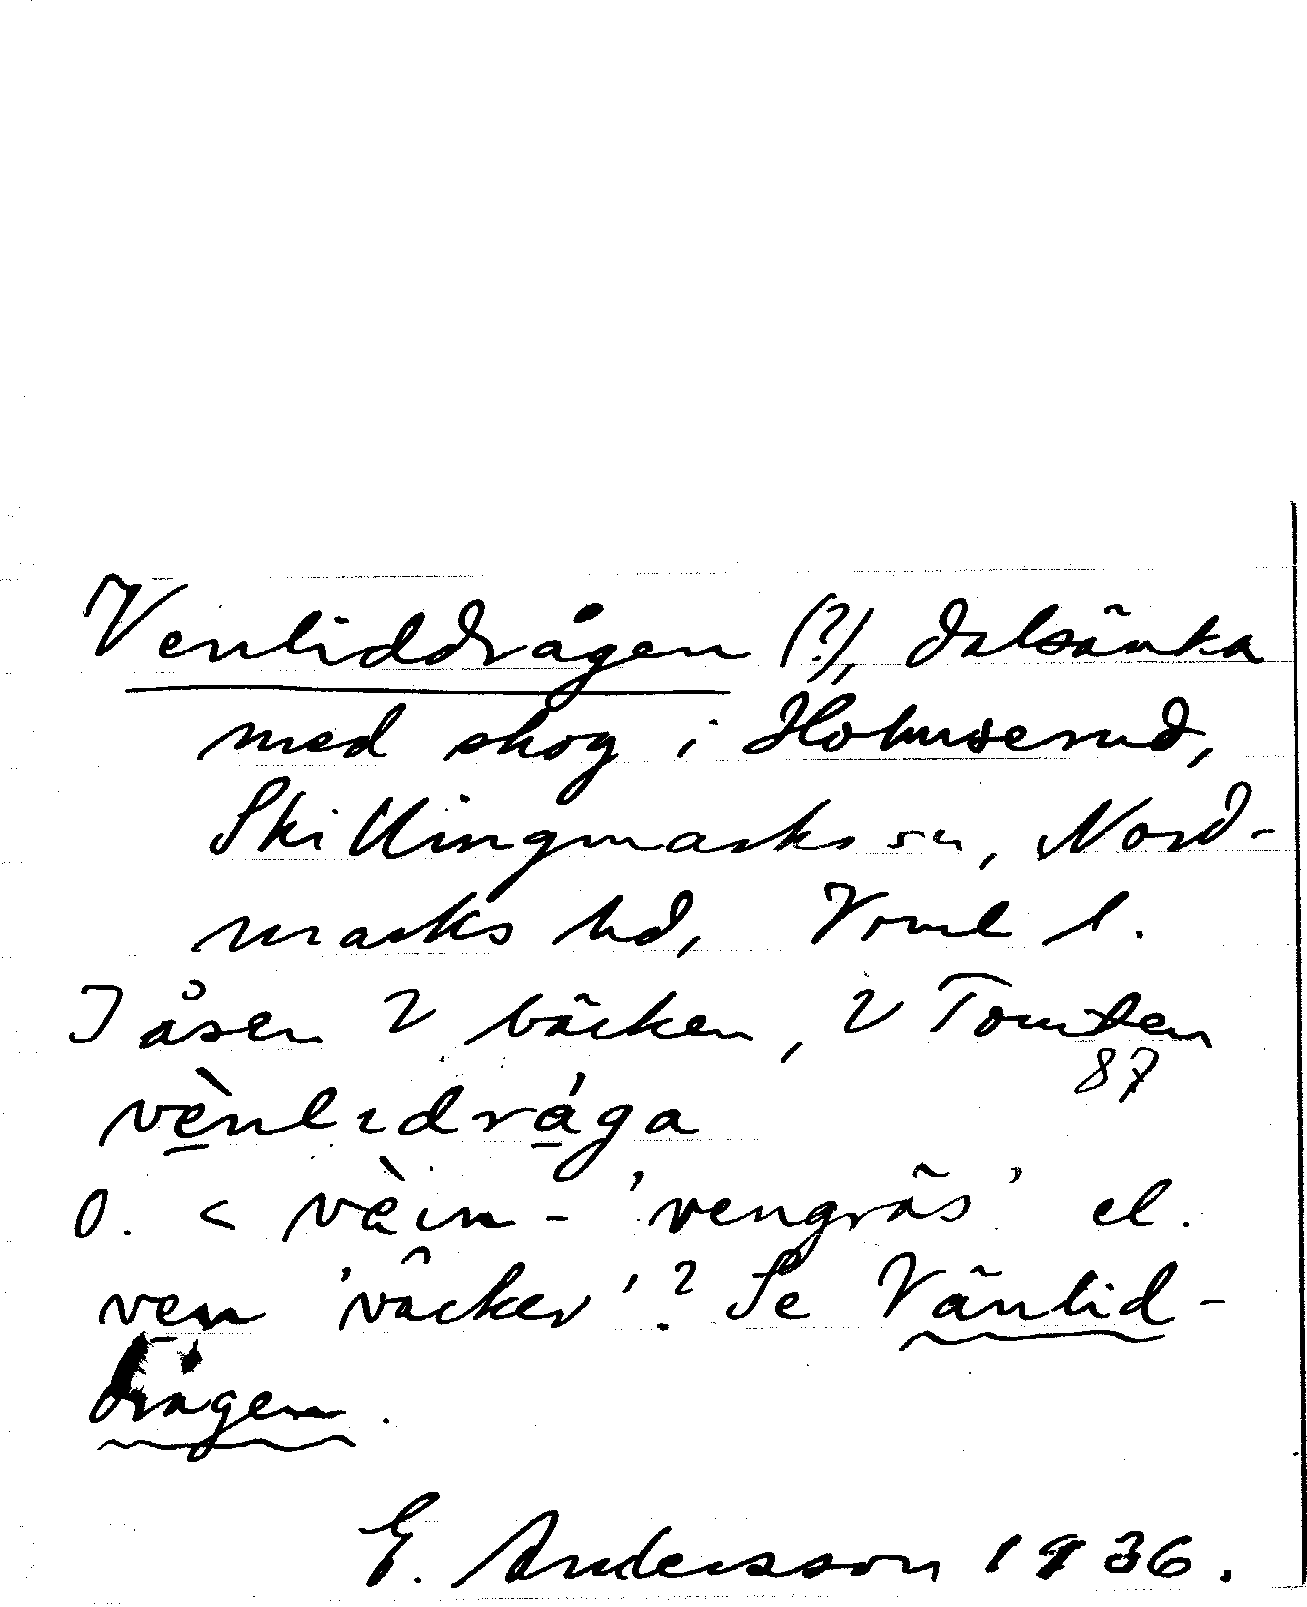 Venliddrågen (?), dalsänka
med skog i Holmserud,
Skillingmarks sn, Nord-
marks hd, Vrml l.
I åsen V bäcken, V Tomten
87
vènlıdrága
O. < vèın- 'vengräs' el.
ven 'vacker'? Se Vänlid-
drågen.
E. Andersson 1936.